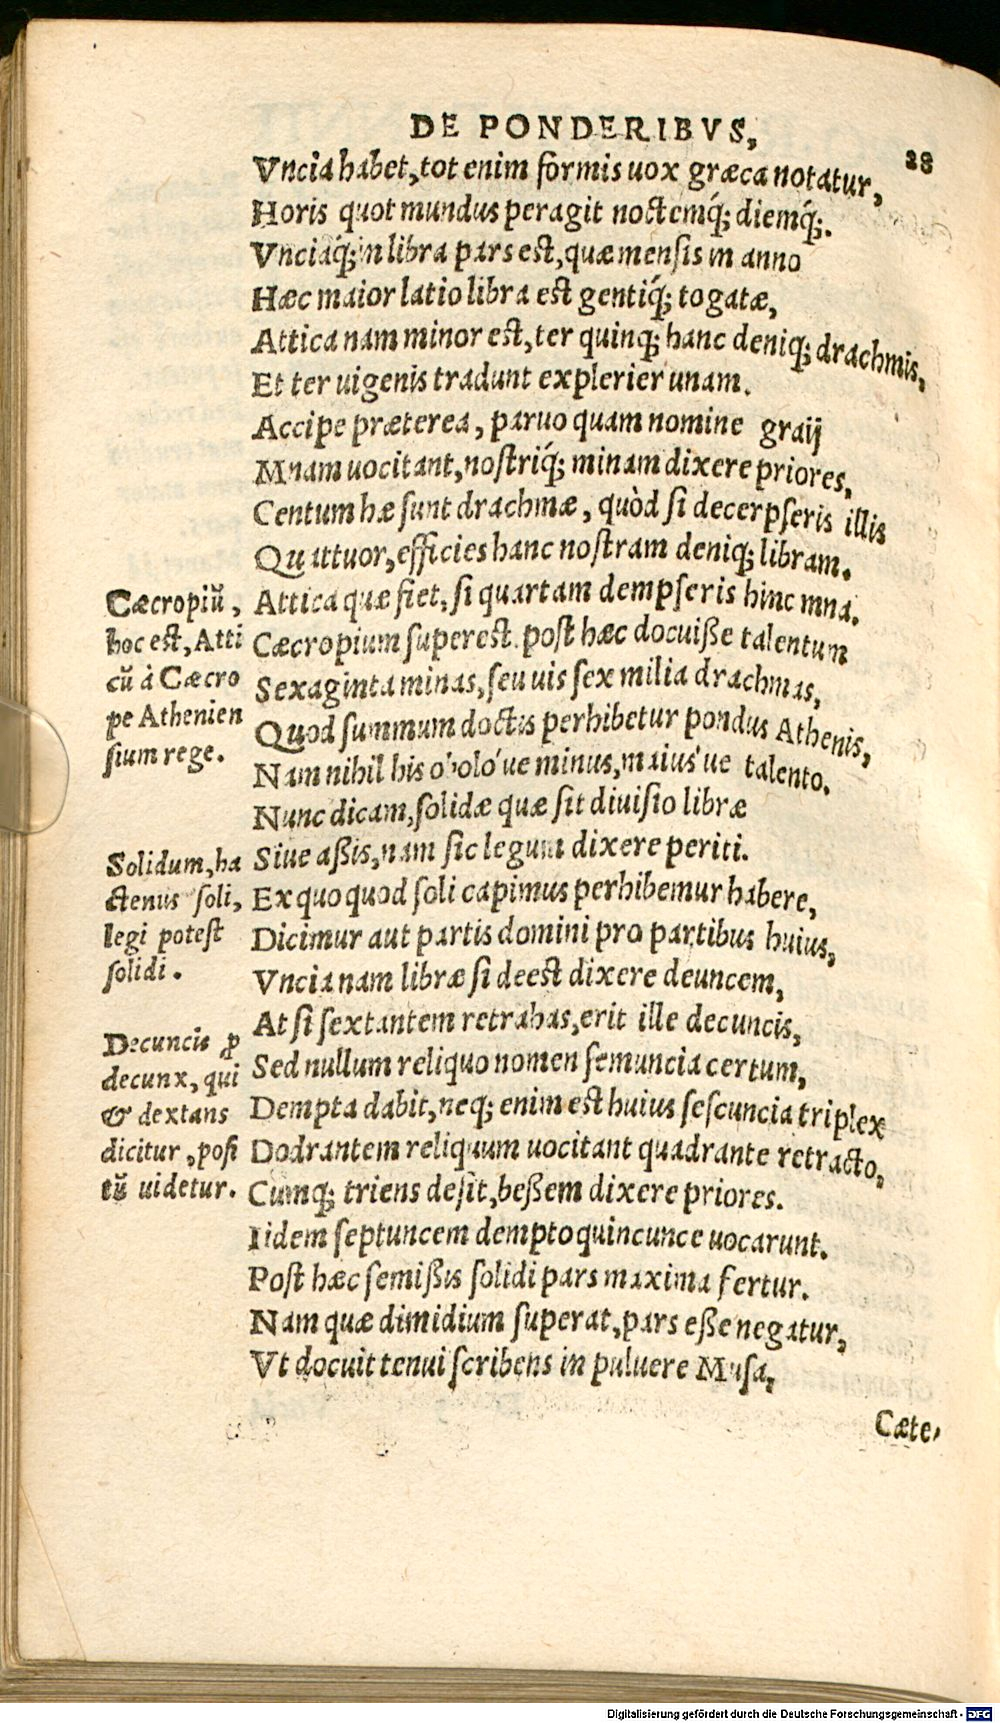 DE PONDERIBVS,
28
Vncia habet, tot enim formis uox græca notatur,
Horis quot mundus peragit noctemq́; diemq́;.
Vnciaq́; in libra pars est, quæ mensis in anno
Hæc maior latio libra est gentiq́; togatæ,
Attica nam minor est, ter quinq; hanc deniq; drachmis,
Et ter uigenis tradunt explerier unam.
Accipe præterea, paruo quam nomine graij
Mnam uocitant, nostriq́; minam dixere priores,
Centum hæ sunt drachmæ, quòd si decerpseris illis
Quattuor, efficies hanc nostram deniq; libram.
Attica quæ fiet, si quartam dempseris hinc mna.
Cæcropium superest. post hæc docuiße talentum
Sexaginta minas, seu uis sex milia drachmas,
Quod summum doctis perhibetur pondus Athenis,
Nam nihil his oboló ue minus, maius'ue talento.
Nunc dicam, solidæ quæ sit diuisio libræ
Siue aßis, nam sic legum dixere periti.
Ex quo quod soli capimus perhibemur habere,
Dicimur aut partis domini pro partibus huius,
Vncia nam libræ si deest dixere deuncem,
At si sextantem retrahas, erit ille decuncis,
Sed nullum reliquo nomen semuncia certum,
Dempta dabit, neq; enim est huius sescuncia triplex
Dodrantem reliquum uocitant quadrante retracto,
Cumq; triens desit, beßem dixere priores.
Iidem septuncem dempto quincunce uocarunt.
Post hæc semißis solidi pars maxima fertur.
Nam quæ dimidium superat, pars eße negatur,
Vt docuit tenui scribens in puluere Musa,
Cæte-
Cæcropiũ,
hoc est, Atti
cũ à Cæcro
pe Athenien
sium rege.
Solidum, ha
ctenus soli,
legi potest
solidi.
Decuncis ꝓ
decunx, qui
& dextans
dicitur, posi
tũ uidetur.
Digitalisierung gefördert durch die Deutsche Forschungsgemeinschaft - DFG